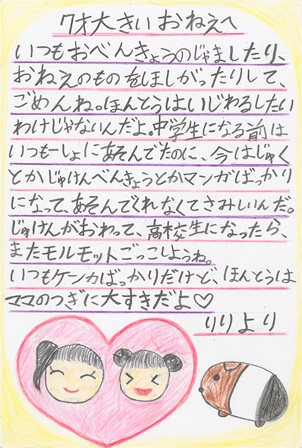 7才大きいおねえへ
いつもおべんきょうのじゃましたり、
おねえのものをほしがったりして、
ごめんね。ほんとうはいじわるしたい
わけじゃないんだよ。中学生になる前は
いつも一しょにあそんでたのに、今はじゅく
とかじゅけんべんきょうとかマンガばっかり
になって、あそんでくれなくてさみしいんだ。
じゅけんがおわって、高校生になったら、
またモルモットごっこしようね。
いつもケンカばっかりだけど、ほんとうは
ママのつぎに大すきだよ♡
りりより